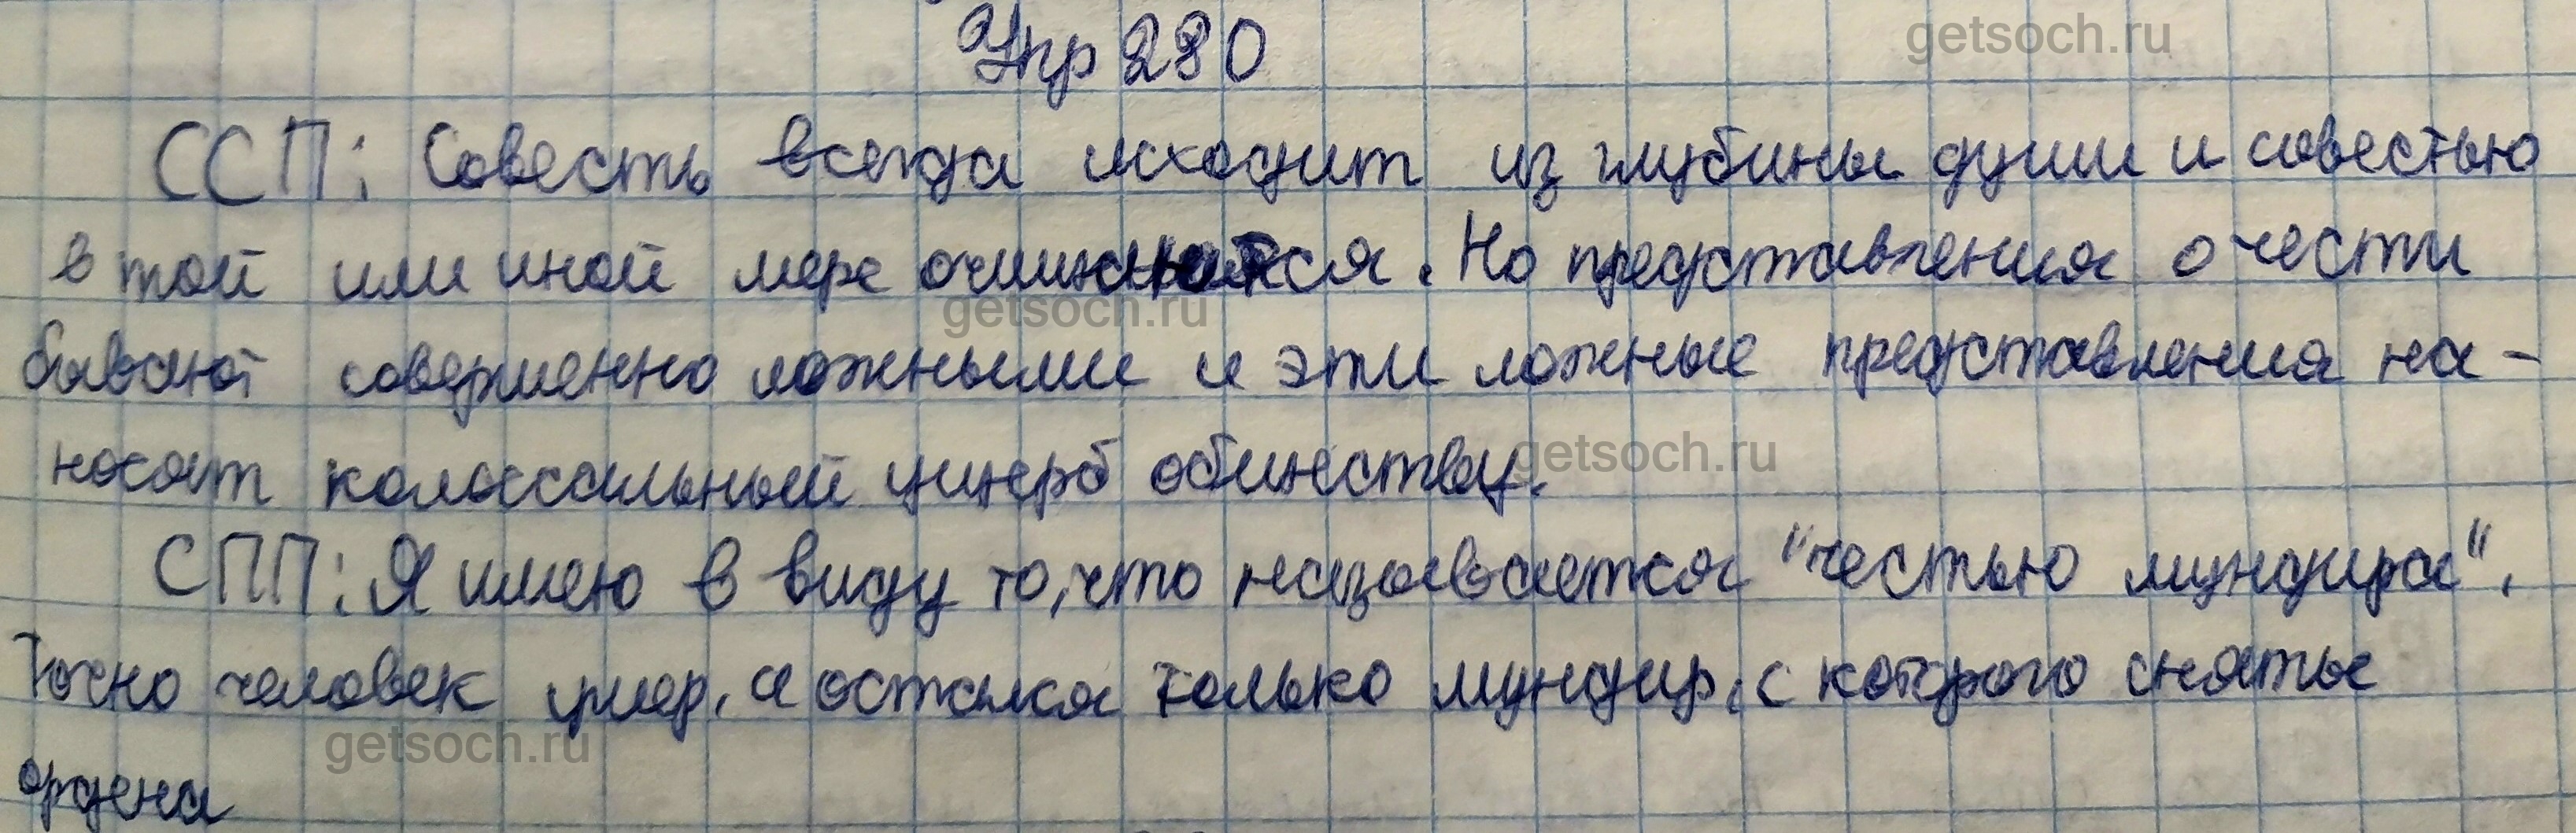 Упр 280
getsoch.ru
ССП: Совесть всегда исходит из глубины души и совестью
в той или иной мере очищаются. Но представления о чести
getsoch.ru
бывают совершенно ложными и эти ложные представления на-
носят колоссальный ущерб обществу.
getsoch.ru
СПП: Я имею в виду то, что называется "честью мундира".
Точно человек умер, а остался только мундир, с которого сняты
getsoch.ru
ордена